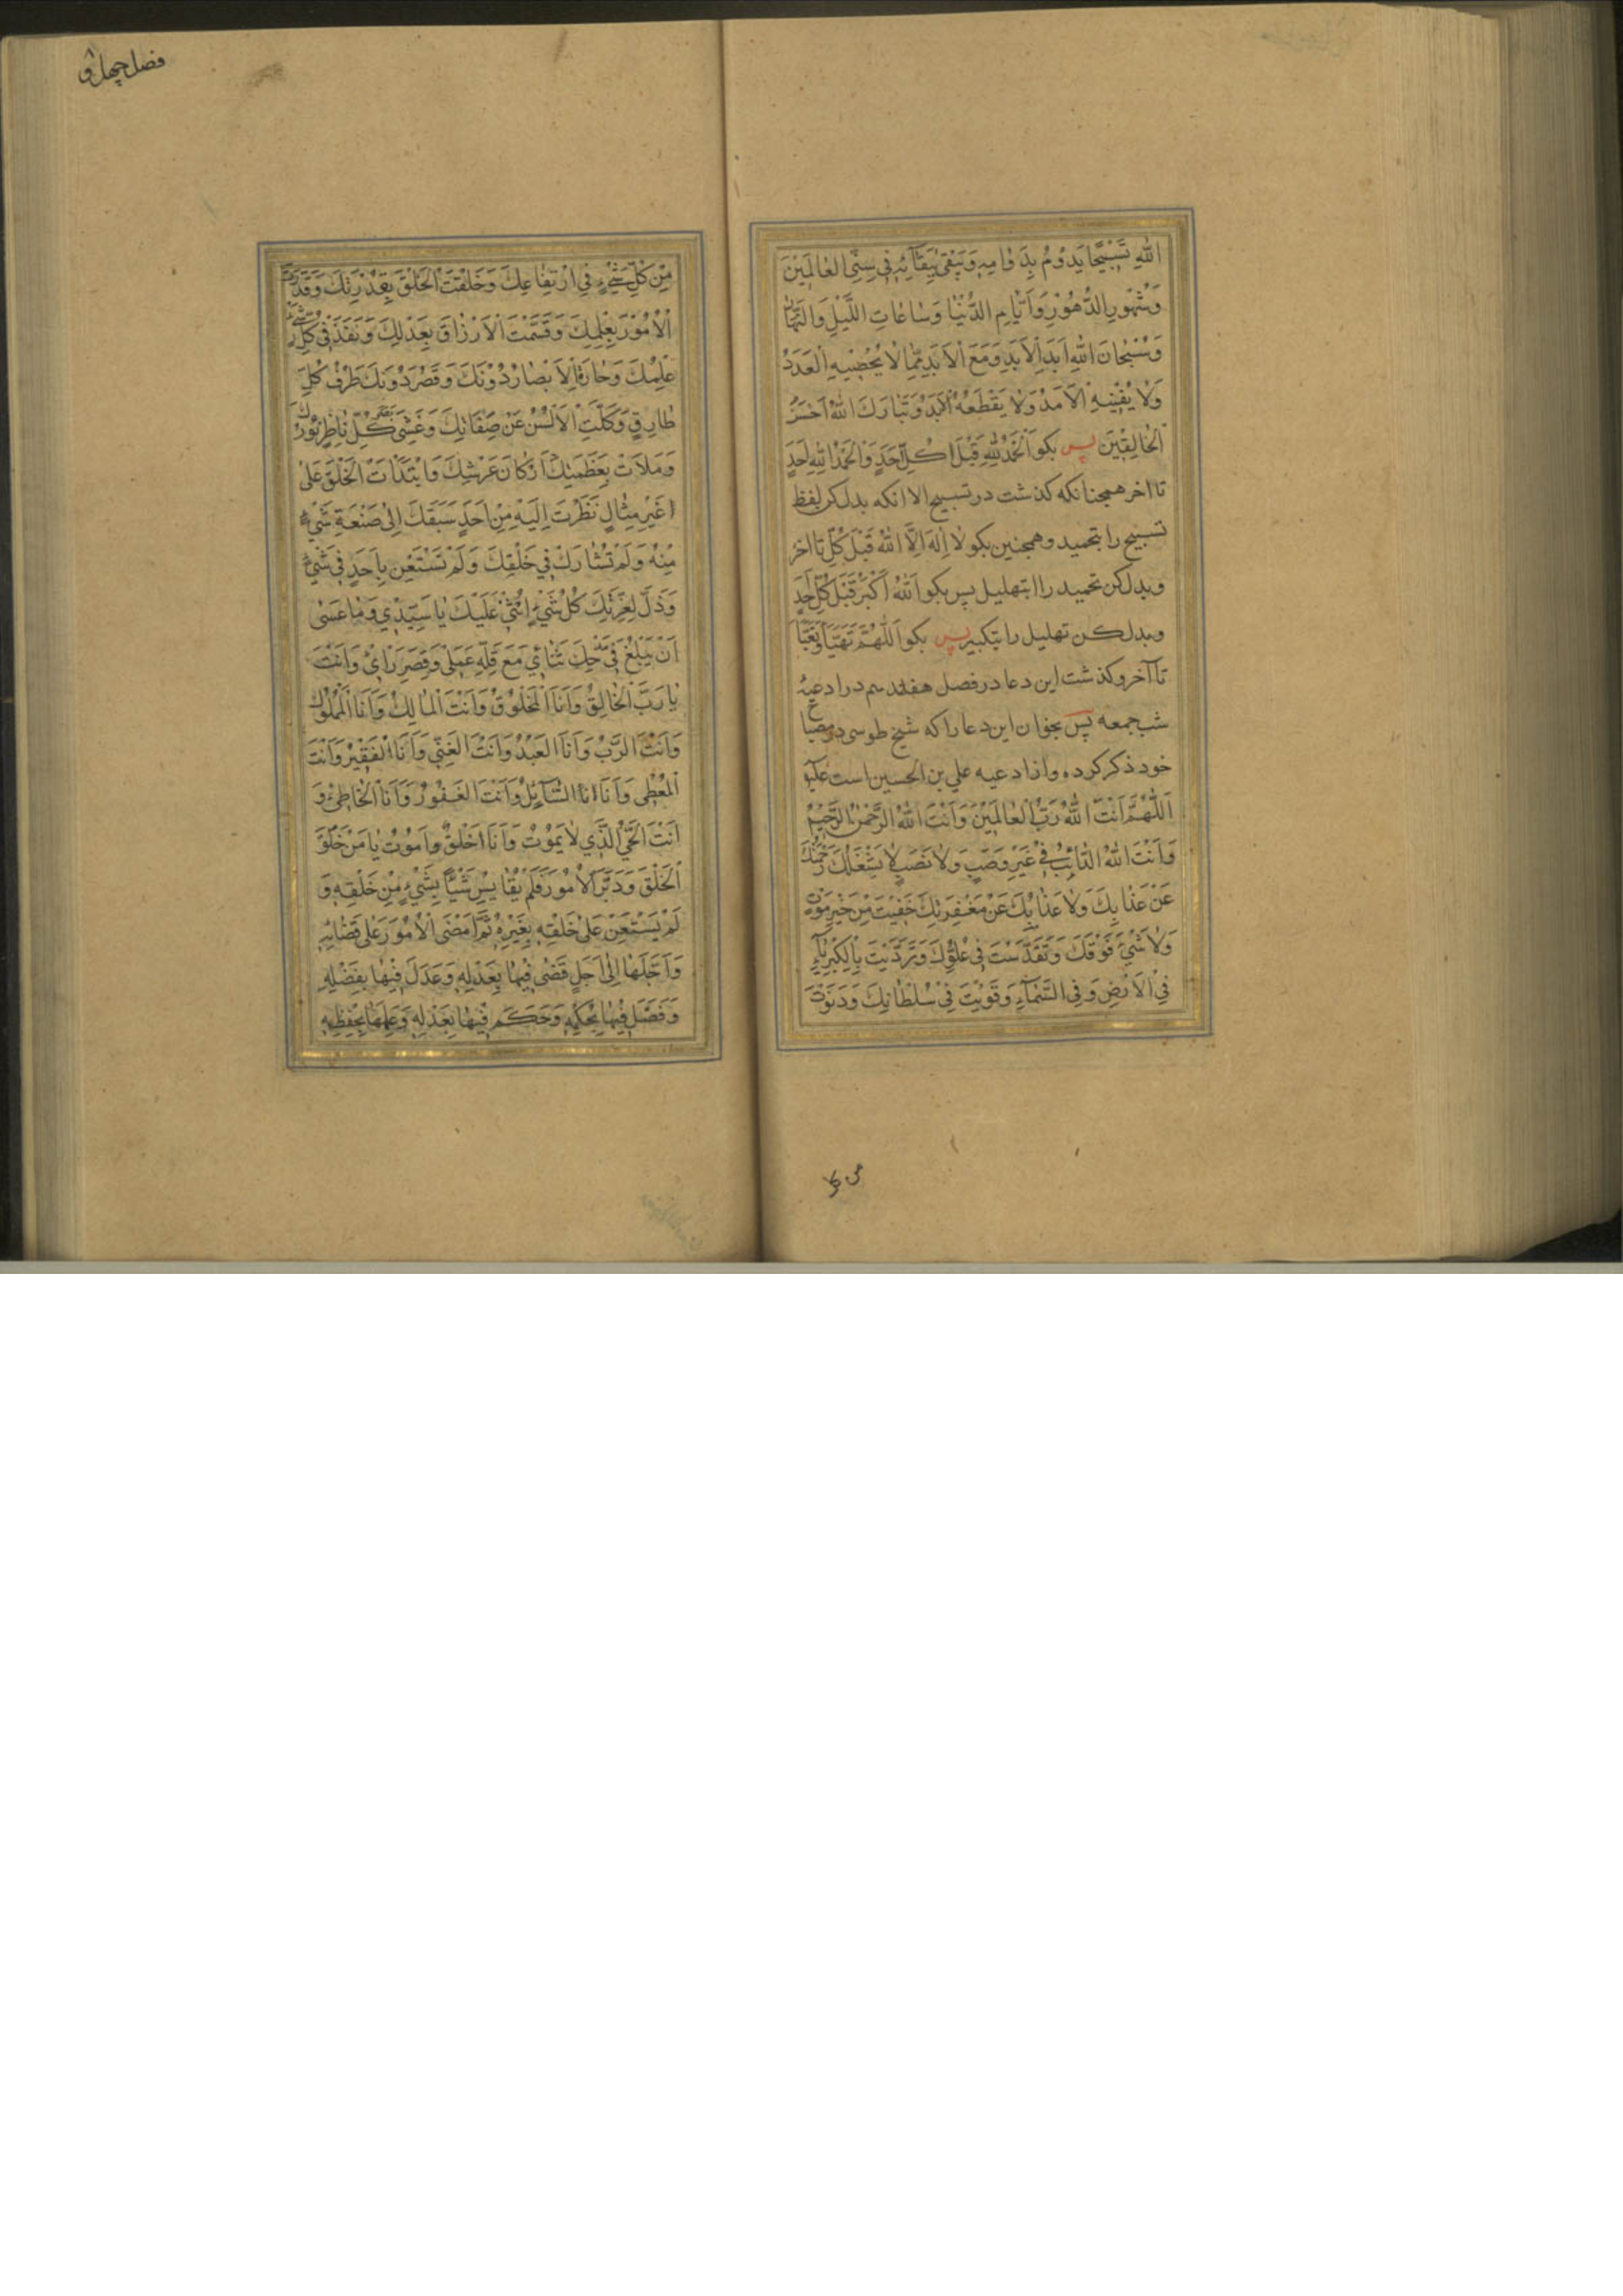 اللهِ تَسْبِيحًا يَدُومُ بِدَوَامِهِ وَيَبْقىٰ بِبَقَآئِهِ فِي سِنِي الْعٰالَمِينَ
وَشُهُورِ الدُّهُورِ وَاَيّٰامِ الدُّنْيٰا وَسٰاعٰاتِ اللَّيْلِ وَالنَّهٰارِ
وَسُبْحٰانَ اللهِ اَبَدَ الْاَبَدِ وَمَعَ الْاَبَدِ مِمّٰا لٰا يُحْصِيهِ الْعَدَدُ
وَلٰا يُفْنِيهِ الْاَمَدُ وَلٰا يَقْطَعُهُ الْاَبَدُ وَتَبٰارَكَ اللهُ اَحْسَنُ
الْخٰالِقِينَ پس بکو اَلْحَمْدُ لِلّٰهِ قَبْلَ كُلِّ اَحَدٍ وَالْحَمْدُ لِلّٰهِ اَحَدٍ
تا اخر همچنانکه کذشت در تسبیح الا انکه بدل کن لفظ
تسبیح را بتحمید وهمچنین بکو لٰا اِلٰهَ اِلَّا اللهُ قَبْلَ كُلِّ تا اخر
وبدل کن تحمید را ابتهلیل پس بکو اَللهُ اَكْبَرُ قَبْلَ كُلِّ اَحَدٍ
وبدل کن تهلیل را بتکبیر پس بکو اَللّٰهُمَّ مَنْ تَهَيَّاَ وَتَعَبَّاَ
تا آخر وکذشت این دعا در فصل هفدهم در ادعیهٔ
شب جمعه پس بخوان این دعا را که شیخ طوسی در مصباح
خود ذکر کرده واز ادعیه علی بن الحسین است علیه
اَللّٰهُمَّ اَنْتَ اللهُ رَبُّ الْعٰالَمِينَ وَاَنْتَ اللهُ الرَّحْمٰنُ الرَّحِيمُ
وَاَنْتَ اللهُ الدّٰائِبُ فِي غَيْرِ وَصَبٍ وَلٰا نَصَبٍ لٰا يَشْغَلُكَ رَحْمَتُكَ
عَنْ عَذٰابِكَ وَلٰا عَذٰابُكَ عَنْ مَغْفِرَتِكَ خَفِيتَ مِنْ غَيْرِ مَوْتٍ
وَلٰا شَيْءَ فَوْقَكَ وَتَقَدَّسْتَ فِي عُلُوِّكَ وَتَرَدَّيْتَ بِالْكِبْرِيٰآءِ
فِي الْاَرْضِ وَفِي السَّمٰآءِ وَقَوِيتَ فِي سُلْطٰانِكَ وَدَنَوْتَ
فصل چهل و
مِنْ كُلِّ شَيْءٍ فِي ارْتِفٰاعِكَ وَخَلَقْتَ الْخَلْقَ بِقُدْرَتِكَ وَقَدَّرْتَ
الْاُمُورَ بِعِلْمِكَ وَقَسَمْتَ الْاَرْزٰاقَ بِعَدْلِكَ وَنَفَذَ فِي كُلِّ شَيْءٍ
عِلْمُكَ وَحٰارَتِ الْاَبْصٰارُ دُونَكَ وَقَصُرَ دُونَكَ طَرْفُ كُلِّ
طٰارِقٍ وَكَلَّتِ الْاَلْسُنُ عَنْ صِفٰاتِكَ وَغَشِيَ بَصَرَ كُلِّ نٰاظِرٍ نُورُكَ
وَمَلَاْتَ بِعَظَمَتِكَ اَرْكٰانَ عَرْشِكَ وَابْتَدَاْتَ الْخَلْقَ عَلىٰ
غَيْرِ مِثٰالٍ نَظَرْتَ اِلَيْهِ مِنْ اَحَدٍ سَبَقَكَ اِلىٰ صَنْعَةِ شَيْءٍ
مِنْهُ وَلَمْ تُشٰارَكْ فِي خَلْقِكَ وَلَمْ تَسْتَعِنْ بِاَحَدٍ فِي شَيْءٍ
وَذَلَّ لِعِزَّتِكَ كُلُّ شَيْءٍ اُثْنِي عَلَيْكَ يٰا سَيِّدِي وَمٰا عَسىٰ
اَنْ يَبْلُغَ فِي مَدْحِكَ ثَنٰائِي مَعَ قِلَّةِ عَمَلِي وَقِصَرِ رَاْيِي وَاَنْتَ
يٰا رَبِّ الْخٰالِقُ وَاَنَا الْمَخْلُوقُ وَاَنْتَ الْمٰالِكُ وَاَنَا الْمَمْلُوكُ
وَاَنْتَ الرَّبُّ وَاَنَا الْعَبْدُ وَاَنْتَ الْغَنِيُّ وَاَنَا الْفَقِيرُ وَاَنْتَ
الْمُعْطِي وَاَنَا انا السّٰآئِلُ وَاَنْتَ الْغَفُورُ وَاَنَا الْخٰاطِئُ وَ
اَنْتَ الْحَيُّ الَّذِي لٰا يَمُوتُ وَاَنَا اخْلَقُ واَمُوتُ يٰا مَنْ خَلَقَ
الْخَلْقَ وَدَبَّرَ الْاُمُورَ فَلَمْ يُقٰايِسْ شَيْئًا بِشَيْءٍ مِنْ خَلْقِهِ وَ
لَمْ يَسْتَعِنْ عَلىٰ خَلْقِهِ بِغَيْرِهِ ثُمَّ اَمْضَى الْاُمُورَ عَلىٰ قَضٰائِهِ
وَاَجَّلَهٰا اِلىٰ اَجَلٍ قَضىٰ فِيهٰا بِعَدْلِهِ وَعَدَلَ فِيهٰا بِفَضْلِهِ
وَفَصَّلَ فِيهٰا بِحُكْمِهِ وَحَكَمَ فِيهٰا بِعَدْلِهِ وَعَلِمَهٰا بِحِفْظِهِ